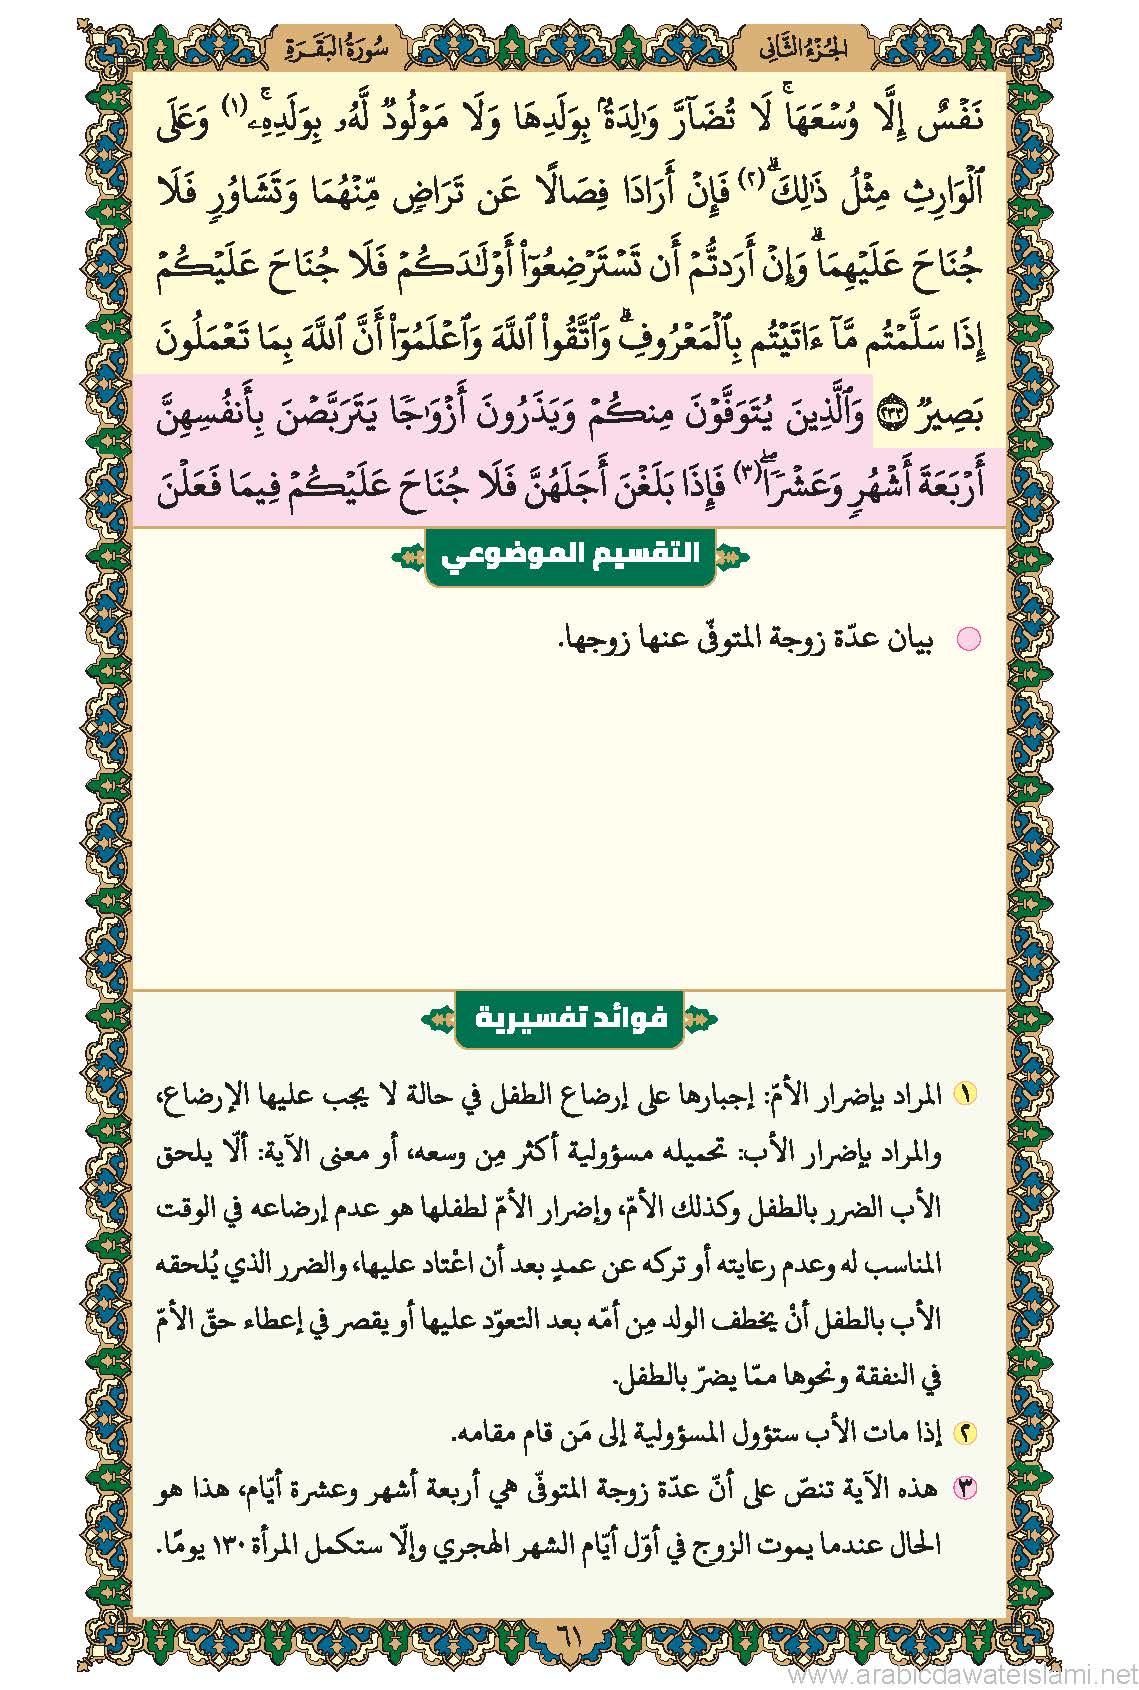 الجزء الثاني
سورة البقرة
نَفۡسٌ إِلَّا وُسۡعَهَاۚ لَا تُضَآرَّ وَٰلِدَةُۢ بِوَلَدِهَا وَلَا مَوۡلُودٞ لَّهُۥ بِوَلَدِهِۦۚ (١) وَعَلَى
ٱلۡوَارِثِ مِثۡلُ ذَٰلِكَۗ (٢) فَإِنۡ أَرَادَا فِصَالًا عَن تَرَاضٖ مِّنۡهُمَا وَتَشَاوُرٖ فَلَا
جُنَاحَ عَلَيۡهِمَاۗ وَإِنۡ أَرَدتُّمۡ أَن تَسۡتَرۡضِعُوٓاْ أَوۡلَٰدَكُمۡ فَلَا جُنَاحَ عَلَيۡكُمۡ
إِذَا سَلَّمۡتُم مَّآ ءَاتَيۡتُم بِٱلۡمَعۡرُوفِۗ وَٱتَّقُواْ ٱللَّهَ وَٱعۡلَمُوٓاْ أَنَّ ٱللَّهَ بِمَا تَعۡمَلُونَ
بَصِيرٞ ٢٣٣ وَٱلَّذِينَ يُتَوَفَّوۡنَ مِنكُمۡ وَيَذَرُونَ أَزۡوَٰجٗا يَتَرَبَّصۡنَ بِأَنفُسِهِنَّ
أَرۡبَعَةَ أَشۡهُرٖ وَعَشۡرٗاۖ (٣) فَإِذَا بَلَغۡنَ أَجَلَهُنَّ فَلَا جُنَاحَ عَلَيۡكُمۡ فِيمَا فَعَلۡنَ
التقسيم الموضوعي
بيان عدّة زوجة المتوفّى عنها زوجها.
فوائد تفسيرية
١ المراد بإضرار الأمّ: إجبارها على إرضاع الطفل في حالة لا يجب عليها الإرضاع،
والمراد بإضرار الأب: تحميله مسؤولية أكثر مِن وسعه، أو معنى الآية: ألّا يلحق
الأب الضرر بالطفل وكذلك الأمّ، وإضرار الأمّ لطفلها هو عدم إرضاعه في الوقت
المناسب له وعدم رعايته أو تركه عن عمدٍ بعد أن اعْتاد عليها، والضرر الذي يُلحقه
الأب بالطفل أنْ يخطف الولد مِن أمّه بعد التعوّد عليها أو يقصر في إعطاء حقّ الأمّ
في النفقة ونحوها ممّا يضرّ بالطفل.
٢ إذا مات الأب ستؤول المسؤولية إلى مَن قام مقامه.
٣ هذه الآية تنصّ على أنّ عدّة زوجة المتوفّى هي أربعة أشهر وعشرة أيّام، هذا هو
الحال عندما يموت الزوج في أوّل أيّام الشهر الهجري وإلّا ستكمل المرأة ١٣٠ يومًا.
٦١
www.arabicdawateislami.net